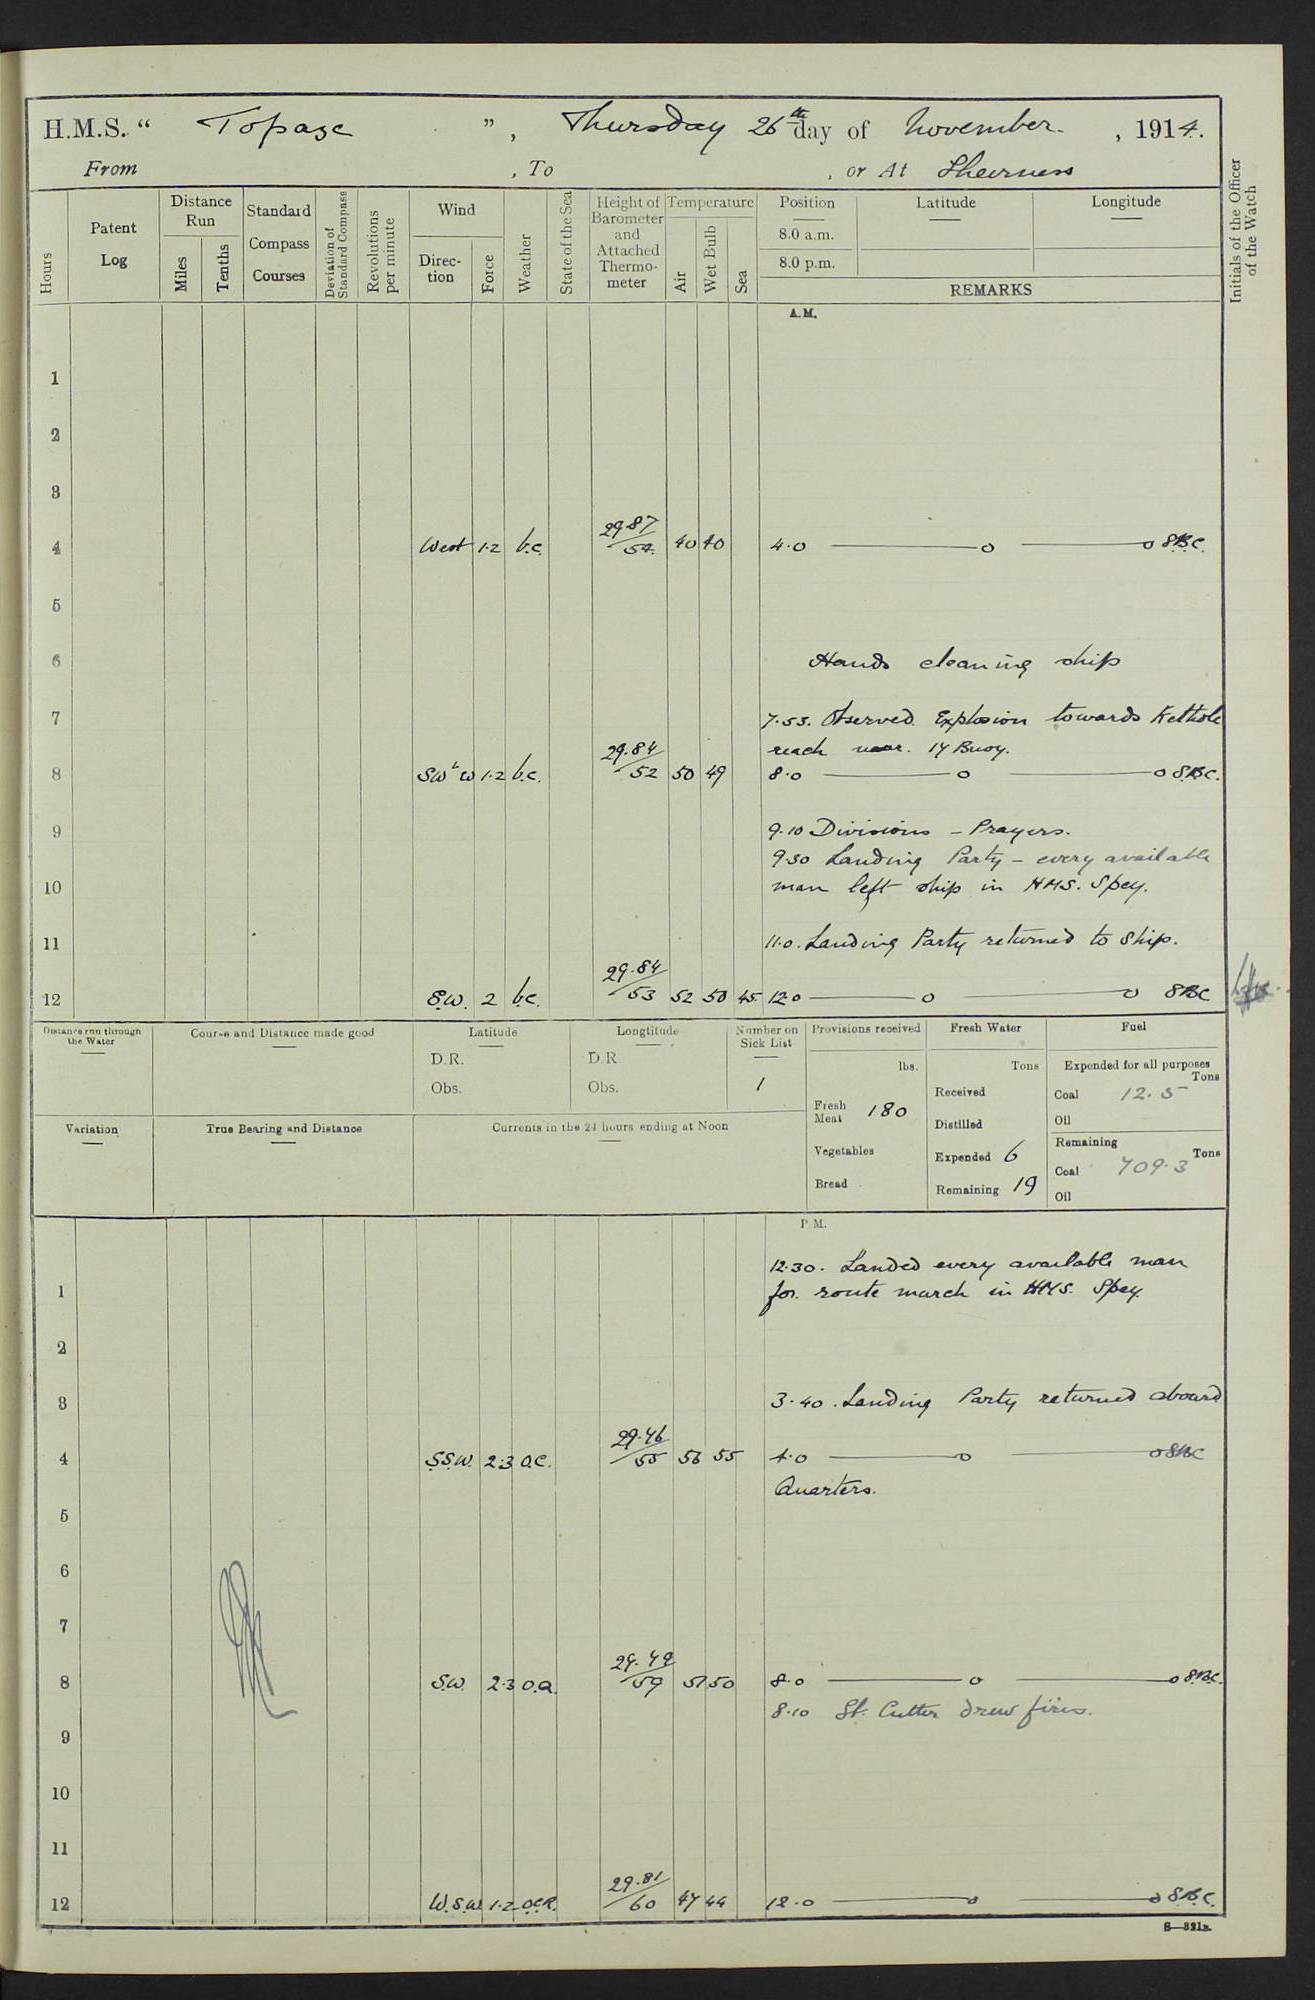 H.M.S. “ Topaze ” , Thursday 26th day of November. , 1914.
From , To , or At Sheerness
Hours
Patent Log
Distance Run
Miles
Tenths
Standard Compass Courses
Deviation of Standard Compass
Revolutions per minute
Wind
Direc-tion
Force
Weather
State of the Sea
Height of Barometer and Attached Thermo-meter
Temperature
Air
Wet Bulb
Sea
Position
8.0 a.m.
8.0 p.m.
Latitude
Longitude
REMARKS
Initials of the Officer of the Watch
A.M.
1
2
3
4 West 1·2 b.c. 29.87/54 40 40 4·0 ——o ——o SBC.
5
6 Hands cleaning ship
7 7·55. Observed Explosion towards Kethole
reach near 17 Buoy.
8 SW'W 1·2 b.c. 29.84/52 50 49 8·0 ——o ——o SBC.
9 9·10 Divisions – Prayers.
9·30 Landing Party – every available
10 man left ship in HMS. Spey.
11 11·0. Landing Party returned to Ship.
12 S.W. 2 b.c. 29.84/53 52 50 45 12·0 ——o ——o SBC
Distance run through the Water
Course and Distance made good
Latitude
D.R.
Obs.
Longtitude
D.R
Obs.
Number on Sick List
1
Provisions received
lbs.
Fresh Meat 180
Vegetables
Bread
Fresh Water
Tons
Received
Distilled
Expended 6
Remaining 19
Fuel
Expended for all purposes
Tons
Coal 12.5
Oil
Remaining
Tons
Coal 709.3
Oil
Variation
True Bearing and Distance
Currents in the 24 hours ending at Noon
P.M.
12·30. Landed every available man
1 for route march in HMS. Spey.
2
3 3·40. Landing Party returned aboard
4 S.S.W. 2·3 O.C. 29.76/55 56 55 4·0 ——o ——o SBC
Quarters.
5
6
7
8 S.W. 2·3 O.Q. 29.79/59 51 50 8·0 ——o ——o S.B.C.
8·10 St. Cutter drew fires.
9
10
11
12 W.S.W 1·2 O.C.R. 29.81/60 47 44 12·0 ——o ——o S.B.C.
S—321B.